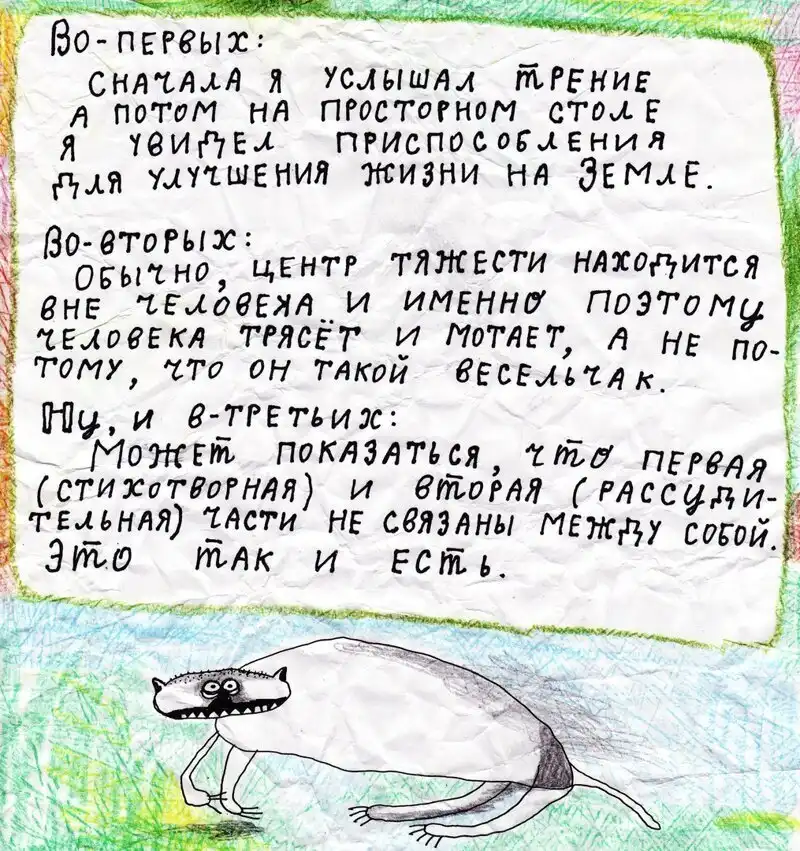 Во-первых:
сначала я услышал трение
а потом на просторном столе
я увидел приспособления
для улучшения жизни на Земле.
Во-вторых:
Обычно, центр тяжести находится
вне человека и именно поэтому
человека трясёт и мотает, а не по-
тому, что он такой весельчак.
Ну, и в-третьих:
Может показаться, что первая
(стихотворная) и вторая (рассуди-
тельная) части не связаны между собой.
Это так и есть.